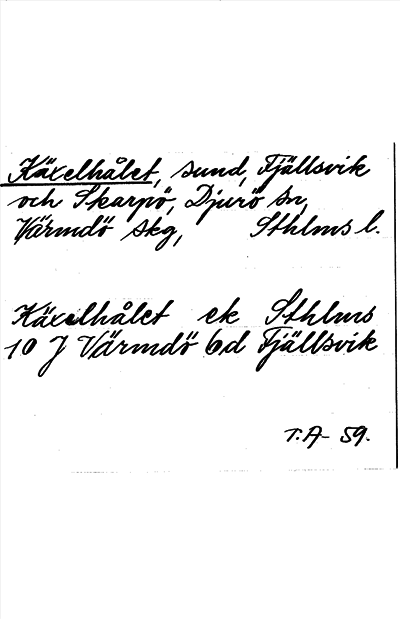 Käxelhålet, sund, Fjällsvik
och Skarpö, Djurö sn,
Värmdö skg, Sthlms l.
Käxelhålet ek Sthlms
10 J Värmdö 6d Fjällsvik
T.A- 59.